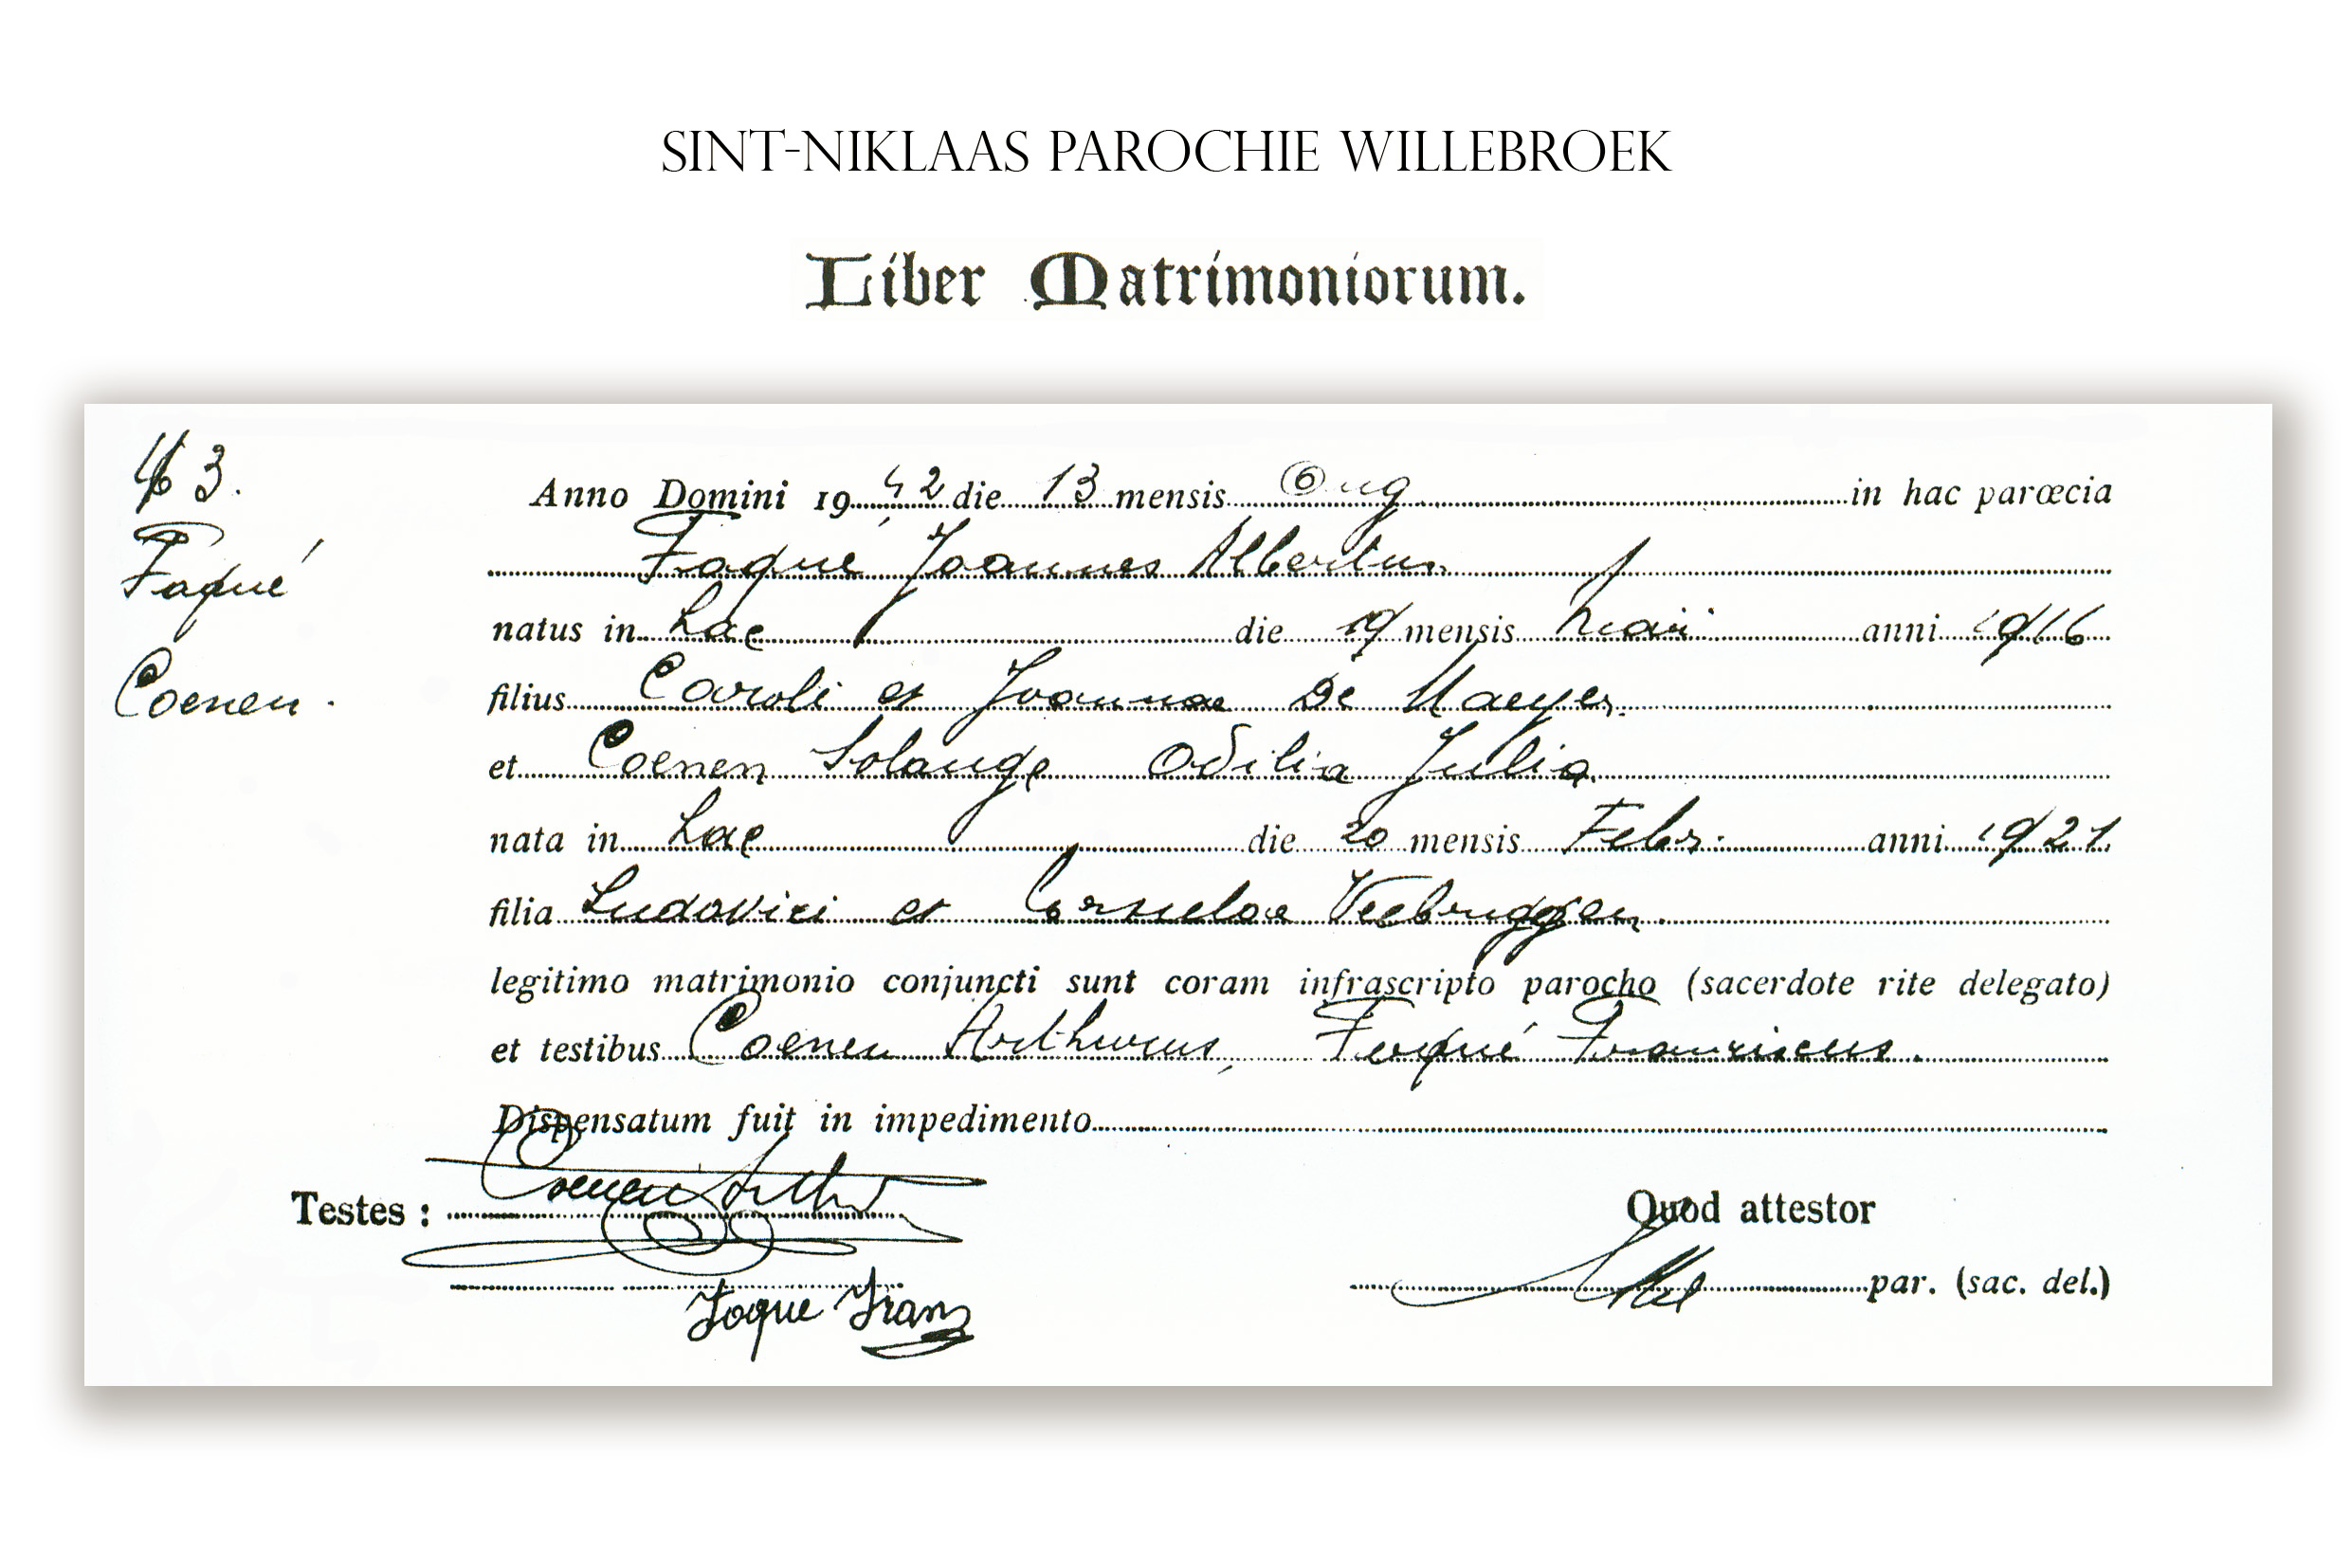 SINT-NIKLAAS PAROCHIE WILLEBROEK
Liber Matrimoniorum.
3.
Faqué
Coenen.
Anno Domini 19 42 die 13 mensis Aug in hac parœcia
Faqué Joannes Albertus
natus in hac die 19 mensis Maii anni 1916
filius Caroli et Joannae De Maeyer.
et Coenen Solange Odilia Julia
nata in hac die 20 mensis Febr. anni 1921
filia Ludovici et Verbruggen.
legitimo matrimonio conjuncti sunt coram infrascripto parocho (sacerdote rite delegato)
et testibus Coenen Arthurus, Faqué Franciscus.
Dispensatum fuit in impedimento
Testes : Coenen Arthur
Quod attestor
Foque Frans
par. (sac. del.)